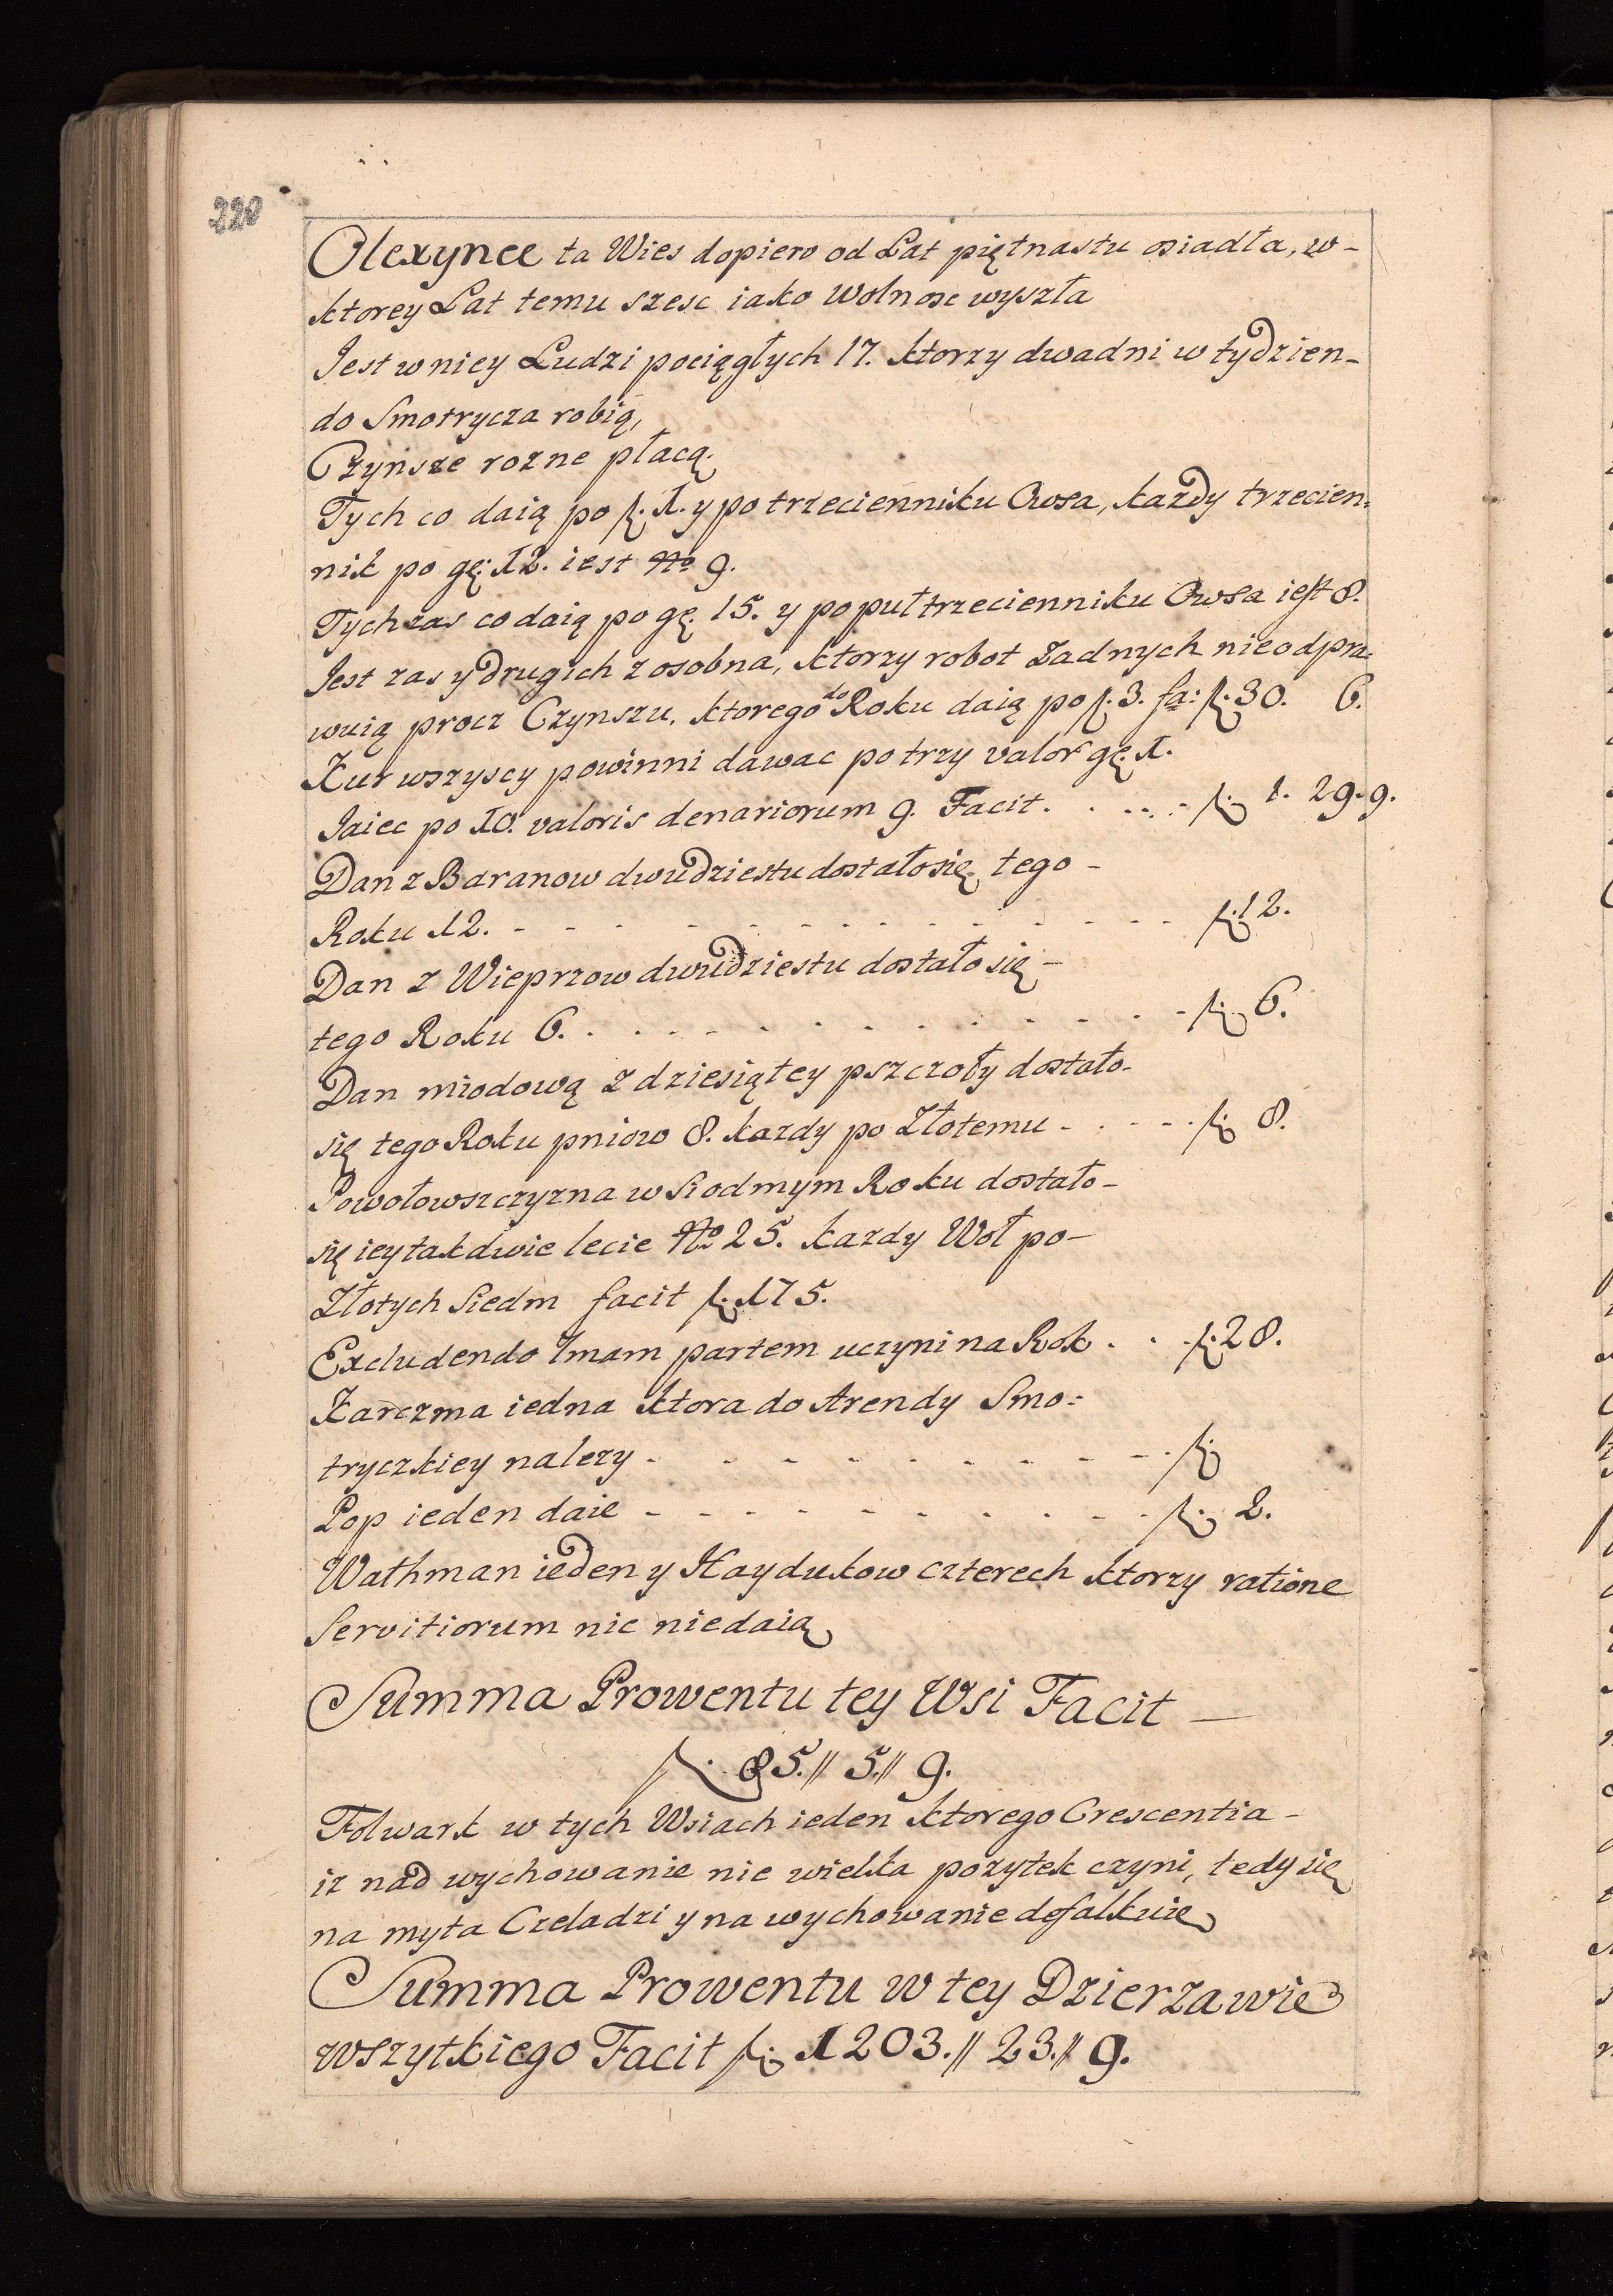 220
Olexynce ta Wies dopiero od Lat piętnastu osiadła, w-
ktorey Lat temu szesc iako Wolnosc wyszła
Jest w niey Ludzi pociągłych 17. ktorzy dwa dni w tydzien-
do Smotrycza robią,
Czynsze rozne płacą.
Tych co daią po f. 1. y po trzecienniku Owsa, kazdy trzecien=
nik po gę. 12. iest No 9.
Tych zas co daią po gę. 15. y po puł trzecienniku Owsa iest 8.
Jest zas y drugich z osobna, ktorzy robot Zadnych nie odpra=
wuią procz Czynszu, ktorego do Roku daią po f. 3. fa: f. 30. 6.
Kur wszyscy powinni dawac po trzy valor gę. 1.
Jaiec po 10. valoris denariorum 9. Facit. . . . . - f. 1. 29. 9.
Dan z Baranow dwudziestu dostało się tego -
Roku 12. - - - - - - - - - - - - f. 12.
Dan z Wieprzow dwudziestu dostało się -
tego Roku 6. . - - - - - - - - - - f. 6.
Dan miodową z dziesiątey pszczoły dostało-
się tego Roku pniow 8. kazdy po Złotemu - . - - - f. 8.
Powołowszczyzna w Siodmym Roku dostało-
się iey tak dwie lecie No 25. kazdy Woł po-
Złotych Siedm facit f. 175.
Excludendo 7mam partem uczyni na Rok . . . f. 28.
Karczma iedna ktora do Arendy Smo=
tryczkiey nalezy - - - - - - - - - f.
Pop ieden daie - - - - - - - - - f. 2.
Wathman ieden y Haydukow czterech ktorzy ratione
Servitiorum nic niedaią
Summa Prowentu tey Wsi Facit —
f. 85.// 5.// 9.
Folwark w tych Wsiach ieden ktorego Crescentia -
iz nad wychowanie nie wielka pozytek czyni, tedy się
na myta Czeladzi y na wychowanie defalkuie
Summa Prowentu w tey Dzierzawie
wszytkiego Facit f. 1203.// 23.// 9.